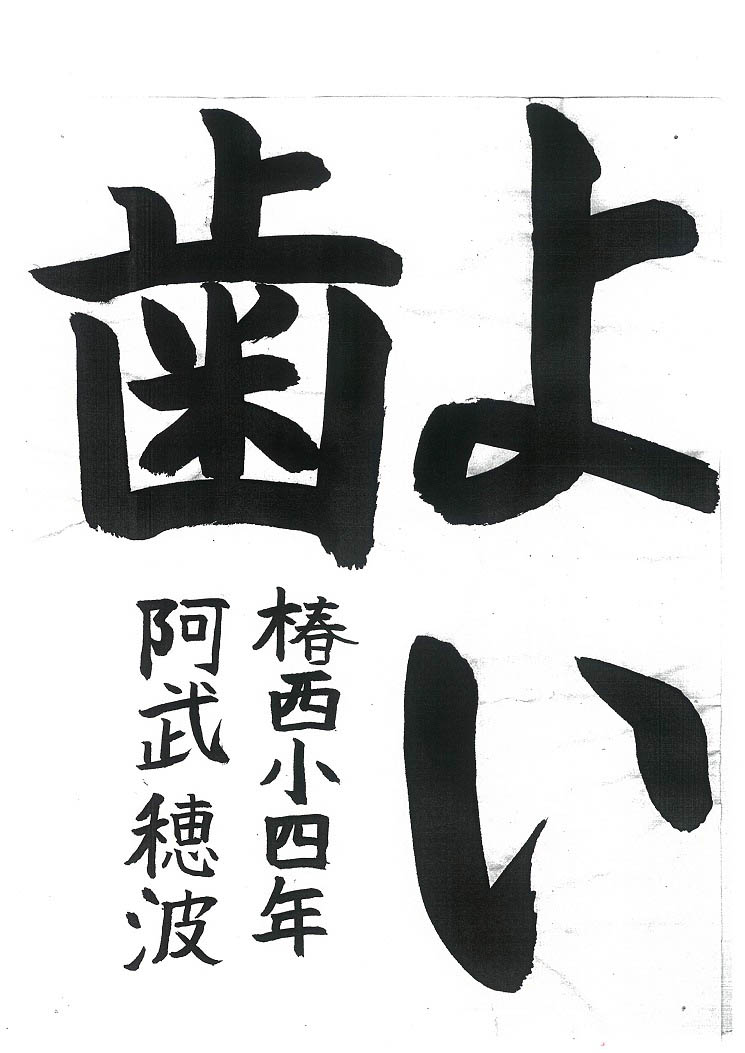 よい
歯
椿西小四年
阿武穂波